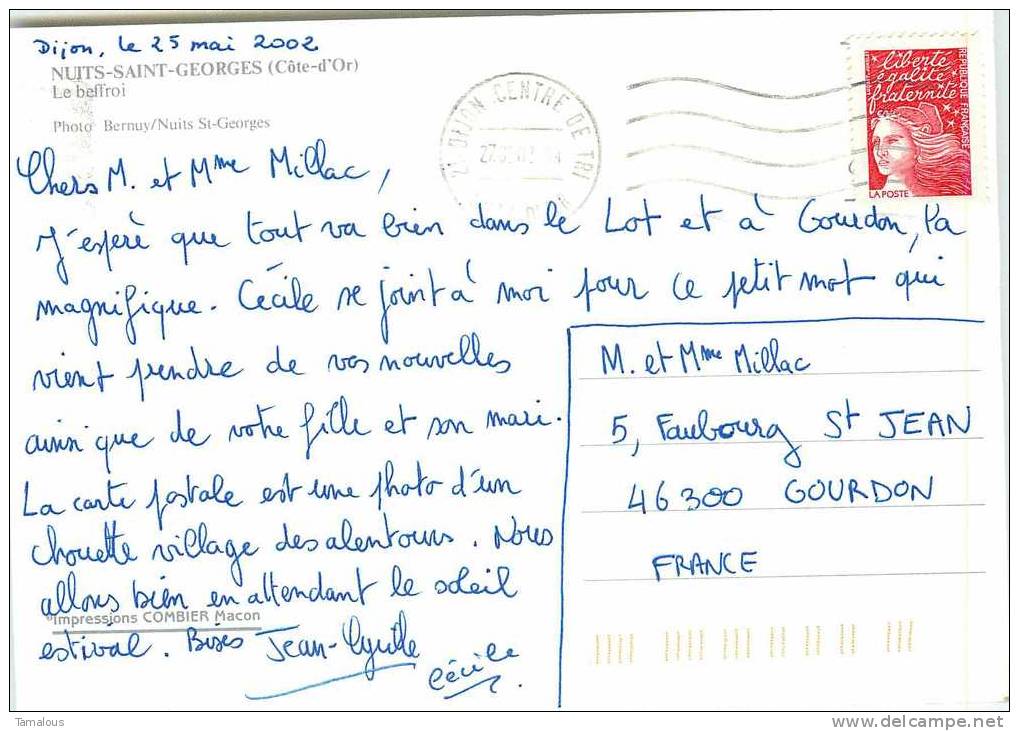 Dijon, le 25 mai 2002
NUITS-SAINT-GEORGES (Côte-d'Or)
Le beffroi
Photo Bernuy/Nuits St-Georges
DIJON CENTRE DE TRI
liberté
égalité
fraternité
RÉPUBLIQUE FRANÇAISE
LA POSTE
Chers M. et Mme Millac,
J'espère que tout va bien dans le Lot et à Gourdon, la
magnifique. Cécile se joint à moi pour ce petit mot qui
vient prendre de vos nouvelles
ainsi que de votre fille et son mari.
La carte postale est une photo d'un
chouette village des alentours. Nous
allons bien en attendant le soleil
Impressions COMBIER Macon
estival. Bises Jean-Cyrille
Cécile
M. et Mme Millac
5, Faubourg St JEAN
46300 GOURDON
FRANCE
Tamalous
www.delcampe.net